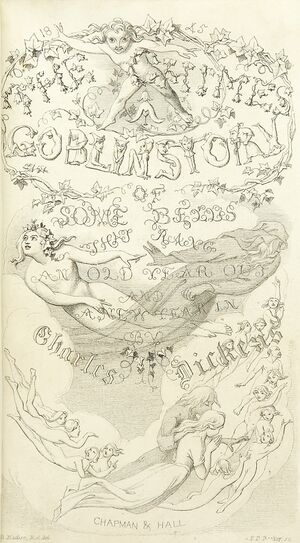 THE CHIMES
A
GOBLIN STORY
OF
SOME BELLS
THAT RANG
AN OLD YEAR OUT
AND
A NEW YEAR IN
BY
Charles Dickens
CHAPMAN & HALL
D. Maclise, R.A. del.